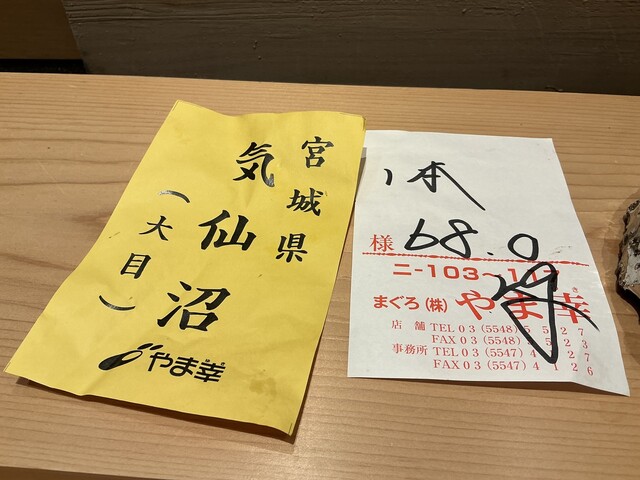 宮城県
気仙沼
(大目)
やま幸
1本
様 68.0
ニ-103～117
まぐろ(株)やま幸
店舗 TEL 03 (5548) 5527
FAX 03 (5548) 5523
事務所 TEL 03 (5547) 4127
FAX 03 (5547) 4126